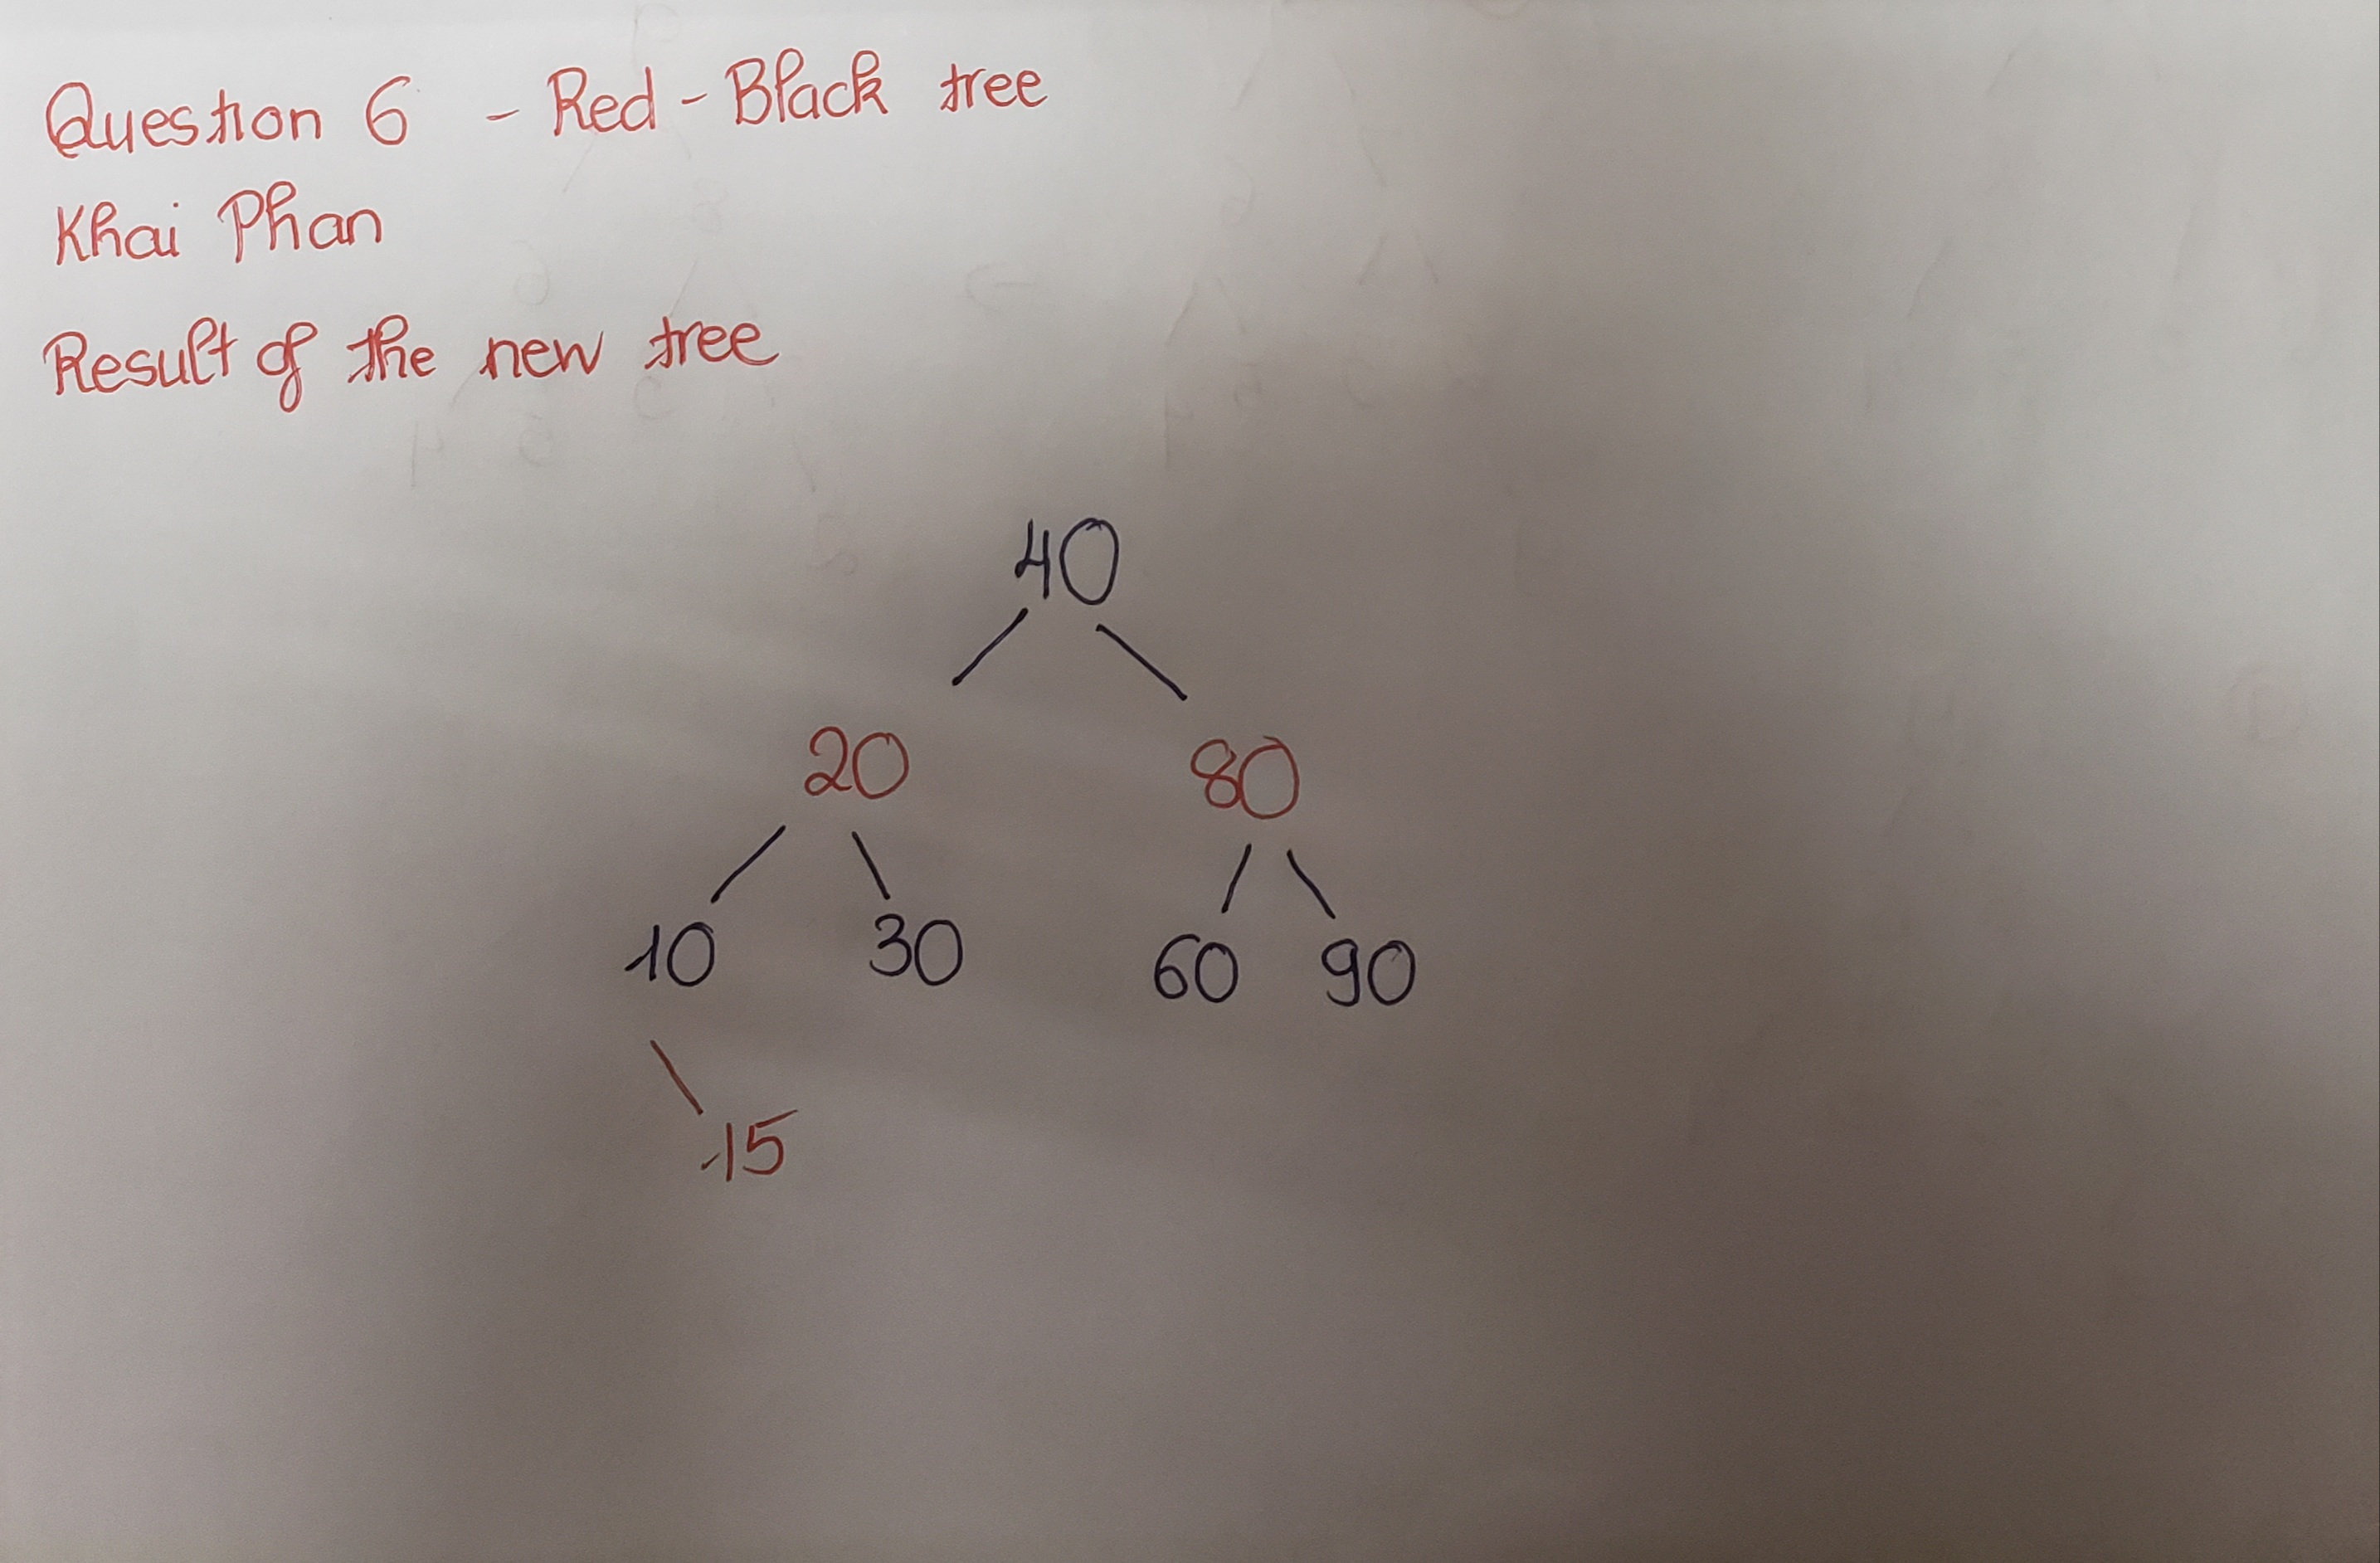 Question 6 - Red-Black tree
Khai Phan
Result of the new tree
40
20 80
10 30 60 90
15